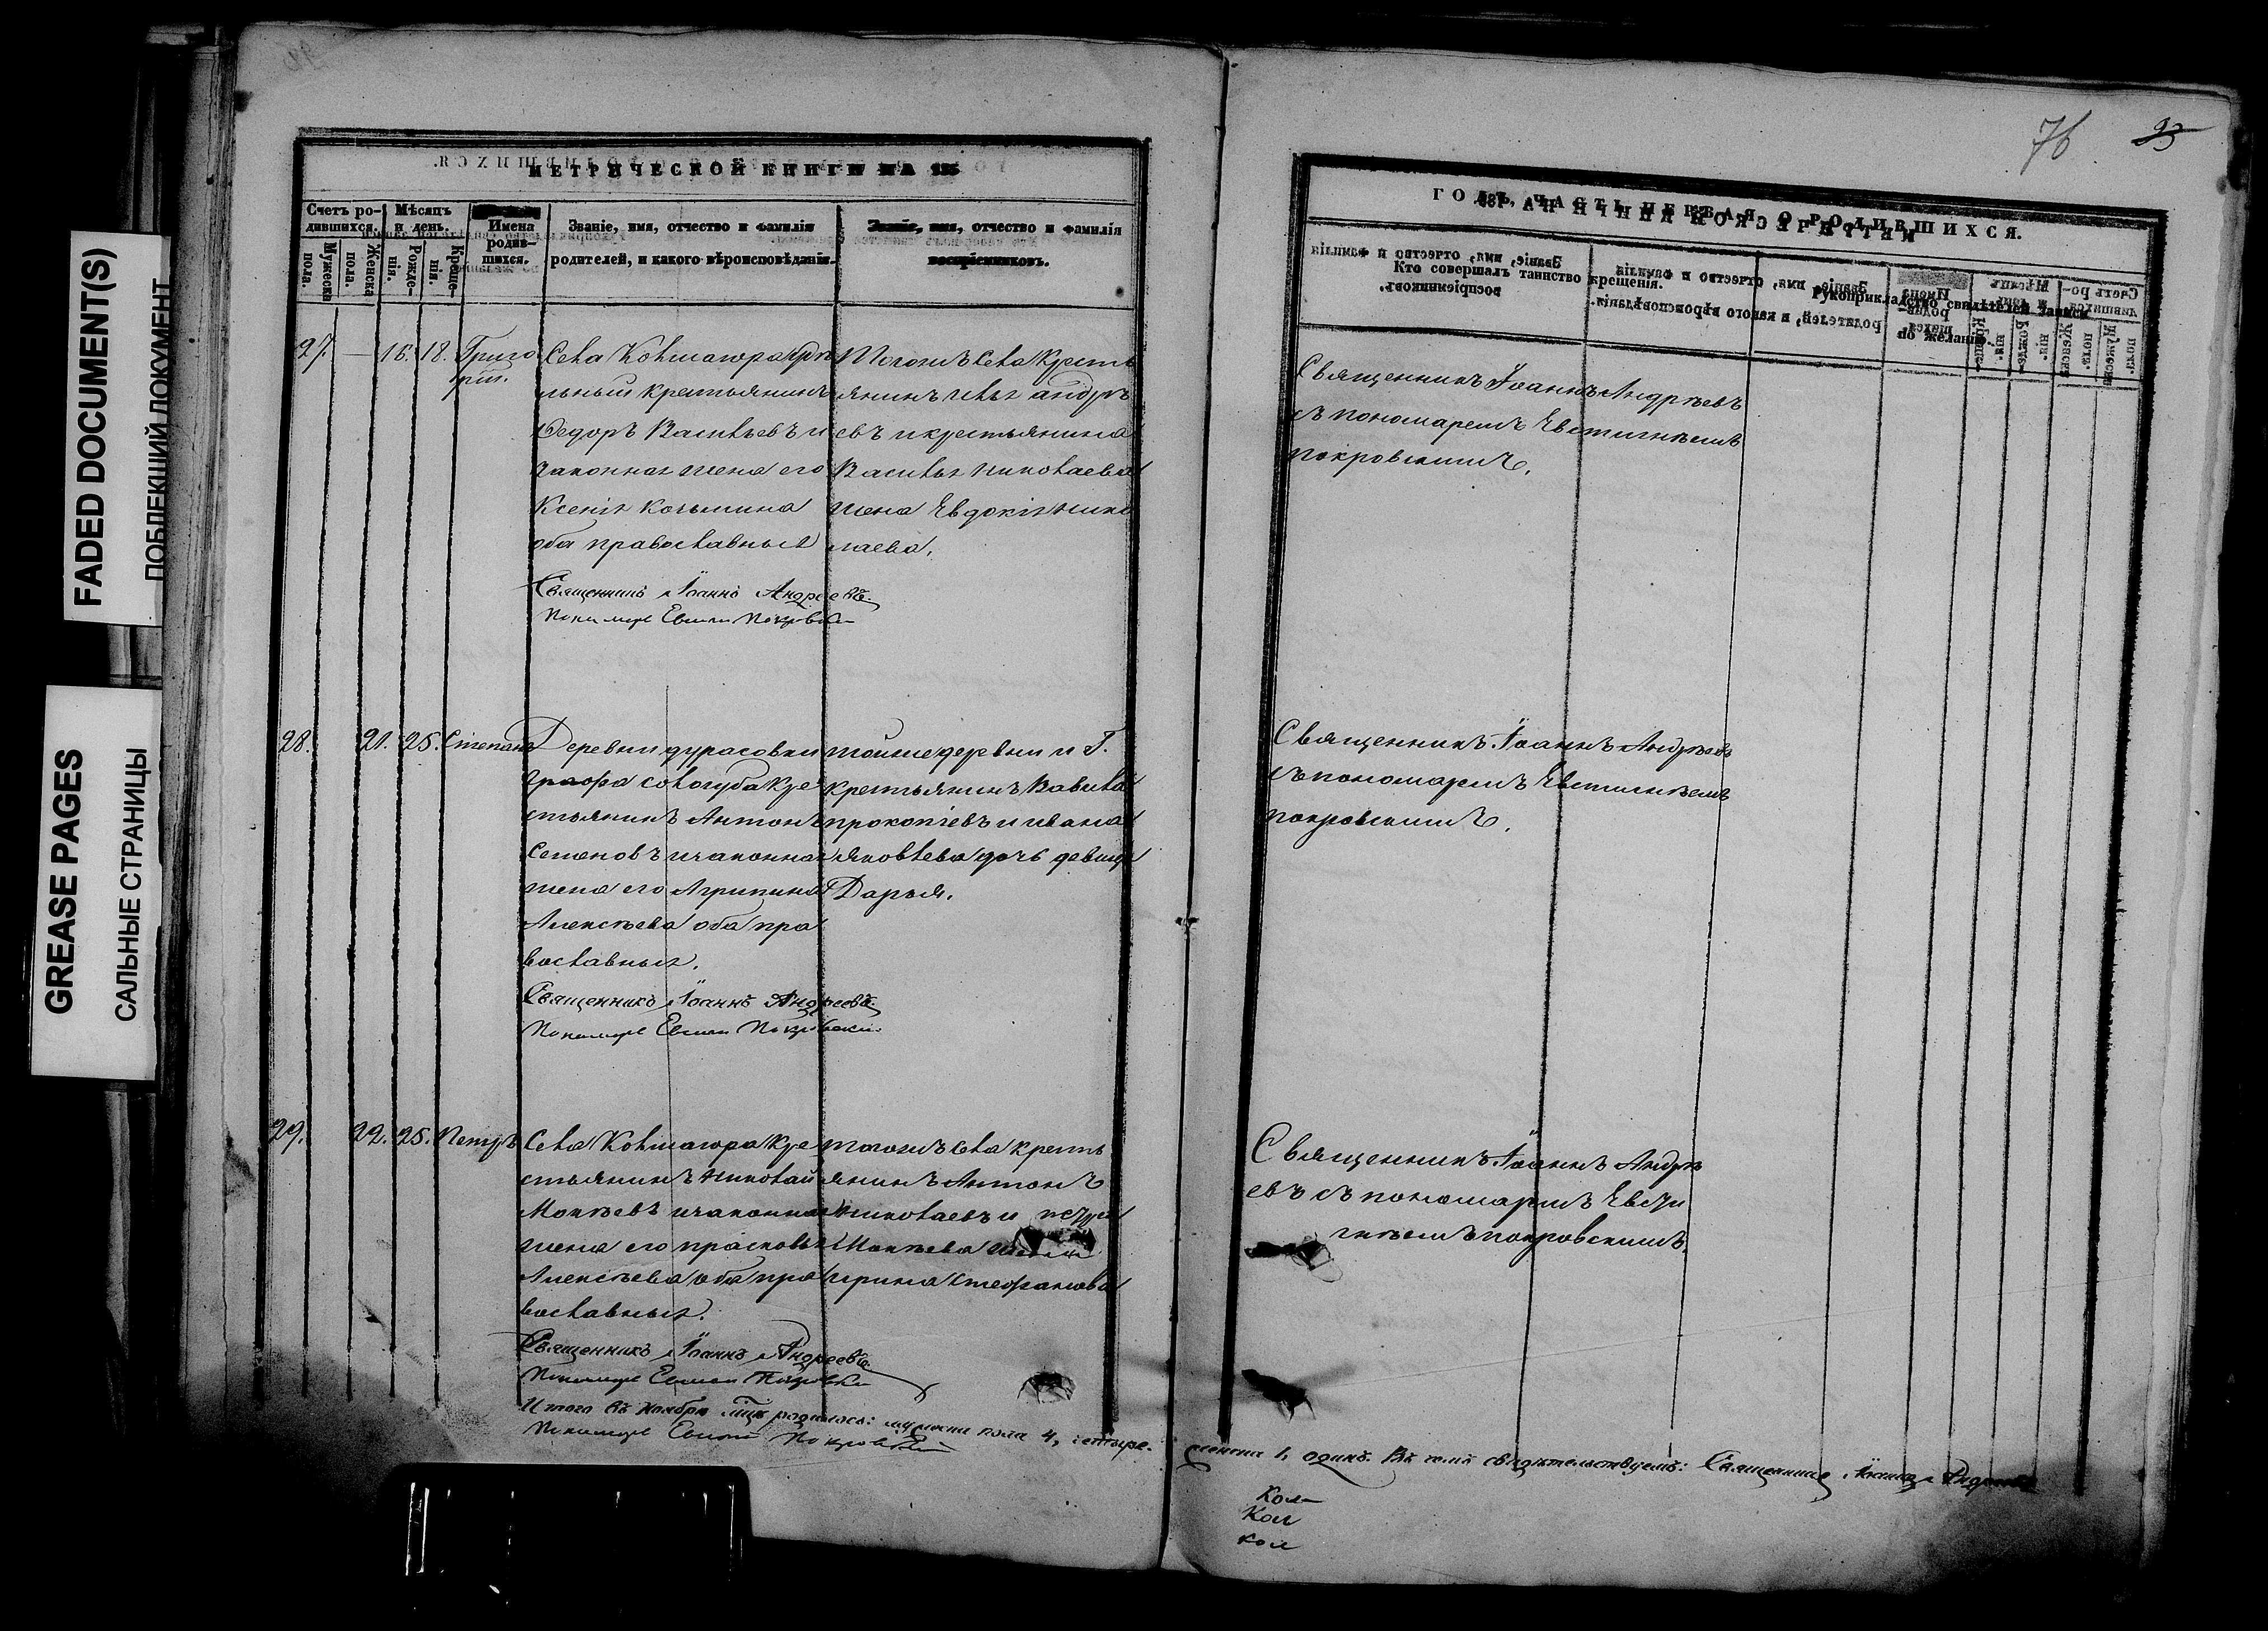 FADED DOCUMENT(S)
ПОБЛЕКШИЙ ДОКУМЕНТ
GREASE PAGES
САЛЬНЫЕ СТРАНИЦЫ
МЕТРИЧЕСКОЙ КНИГИ НА 185
Счетъ ро-
дившихся.
Мужеска
пола.
Женска
пола.
Мѣсяцъ
и день.
Рожде-
нія.
Креще-
нія.
Имена
родив-
шихся.
Званіе, имя, отчество и фамилія
родителей, и какого вѣроисповѣданія.
Званіе, имя, отчество и фамилія
воспріемниковъ.
27. — 16. 18. Григо
рій.
Села Колмагора
льный крестьянинъ
Ѳедоръ Васильевъ и
законная жена его
Ксенія Козьмина
оба православныя
Тогожъ села кресть
янинъ андре
евъ и крестьянина
Василья Николаева
жена Евдокія Нико
лаева.
Священникъ Іоаннъ Андреевъ
28. 21. 25. Степанъ
Деревни дурасовки
графа сологуба кре
стьянинъ Антонъ
Семеновъ и законная
жена его Агрипина
Алексѣева оба пра
вославныя.
тойже деревни и Г.
крестьянинъ Вавила
прокопіевъ и ивана
Яковлева дочь девица
Дарья.
Священникъ Іоаннъ Андреевъ
29. 22. 25. Петръ
Села Колмагора кре
стьянинъ Николай
Мокѣевъ и законная
жена его прасковья
Алексѣева оба пра
вославныя.
тогожъ села кресть
янинъ Антонъ
Николаевъ и
Мокѣева жена
ирина Стефанова
Священникъ Іоаннъ Андреевъ
Итого въ Ноябрѣ м̃цѣ родилось: мужеска пола 4, четыре.
женска 1, одинъ. Въ чемъ свидѣтельствуемъ: Священникъ Іоаннъ Андреевъ
76 93
ГОДЪ, ЧАСТЬ ПЕРВАЯ, О РОДИВШИХСЯ.
Кто совершалъ таинство
крещенія.
Рукоприкладство свидѣтелей записи
по желанію.
Священникъ Іоаннъ Андрѣевъ
съ пономаремъ Евстигнѣемъ
покровскимъ.
Священникъ Іоаннъ Андрѣевъ
съ пономаремъ Евстигнѣемъ
покровскимъ.
Священникъ Іоаннъ Андрѣ
евъ съ пономаремъ Евсти
гнѣемъ покровскимъ.